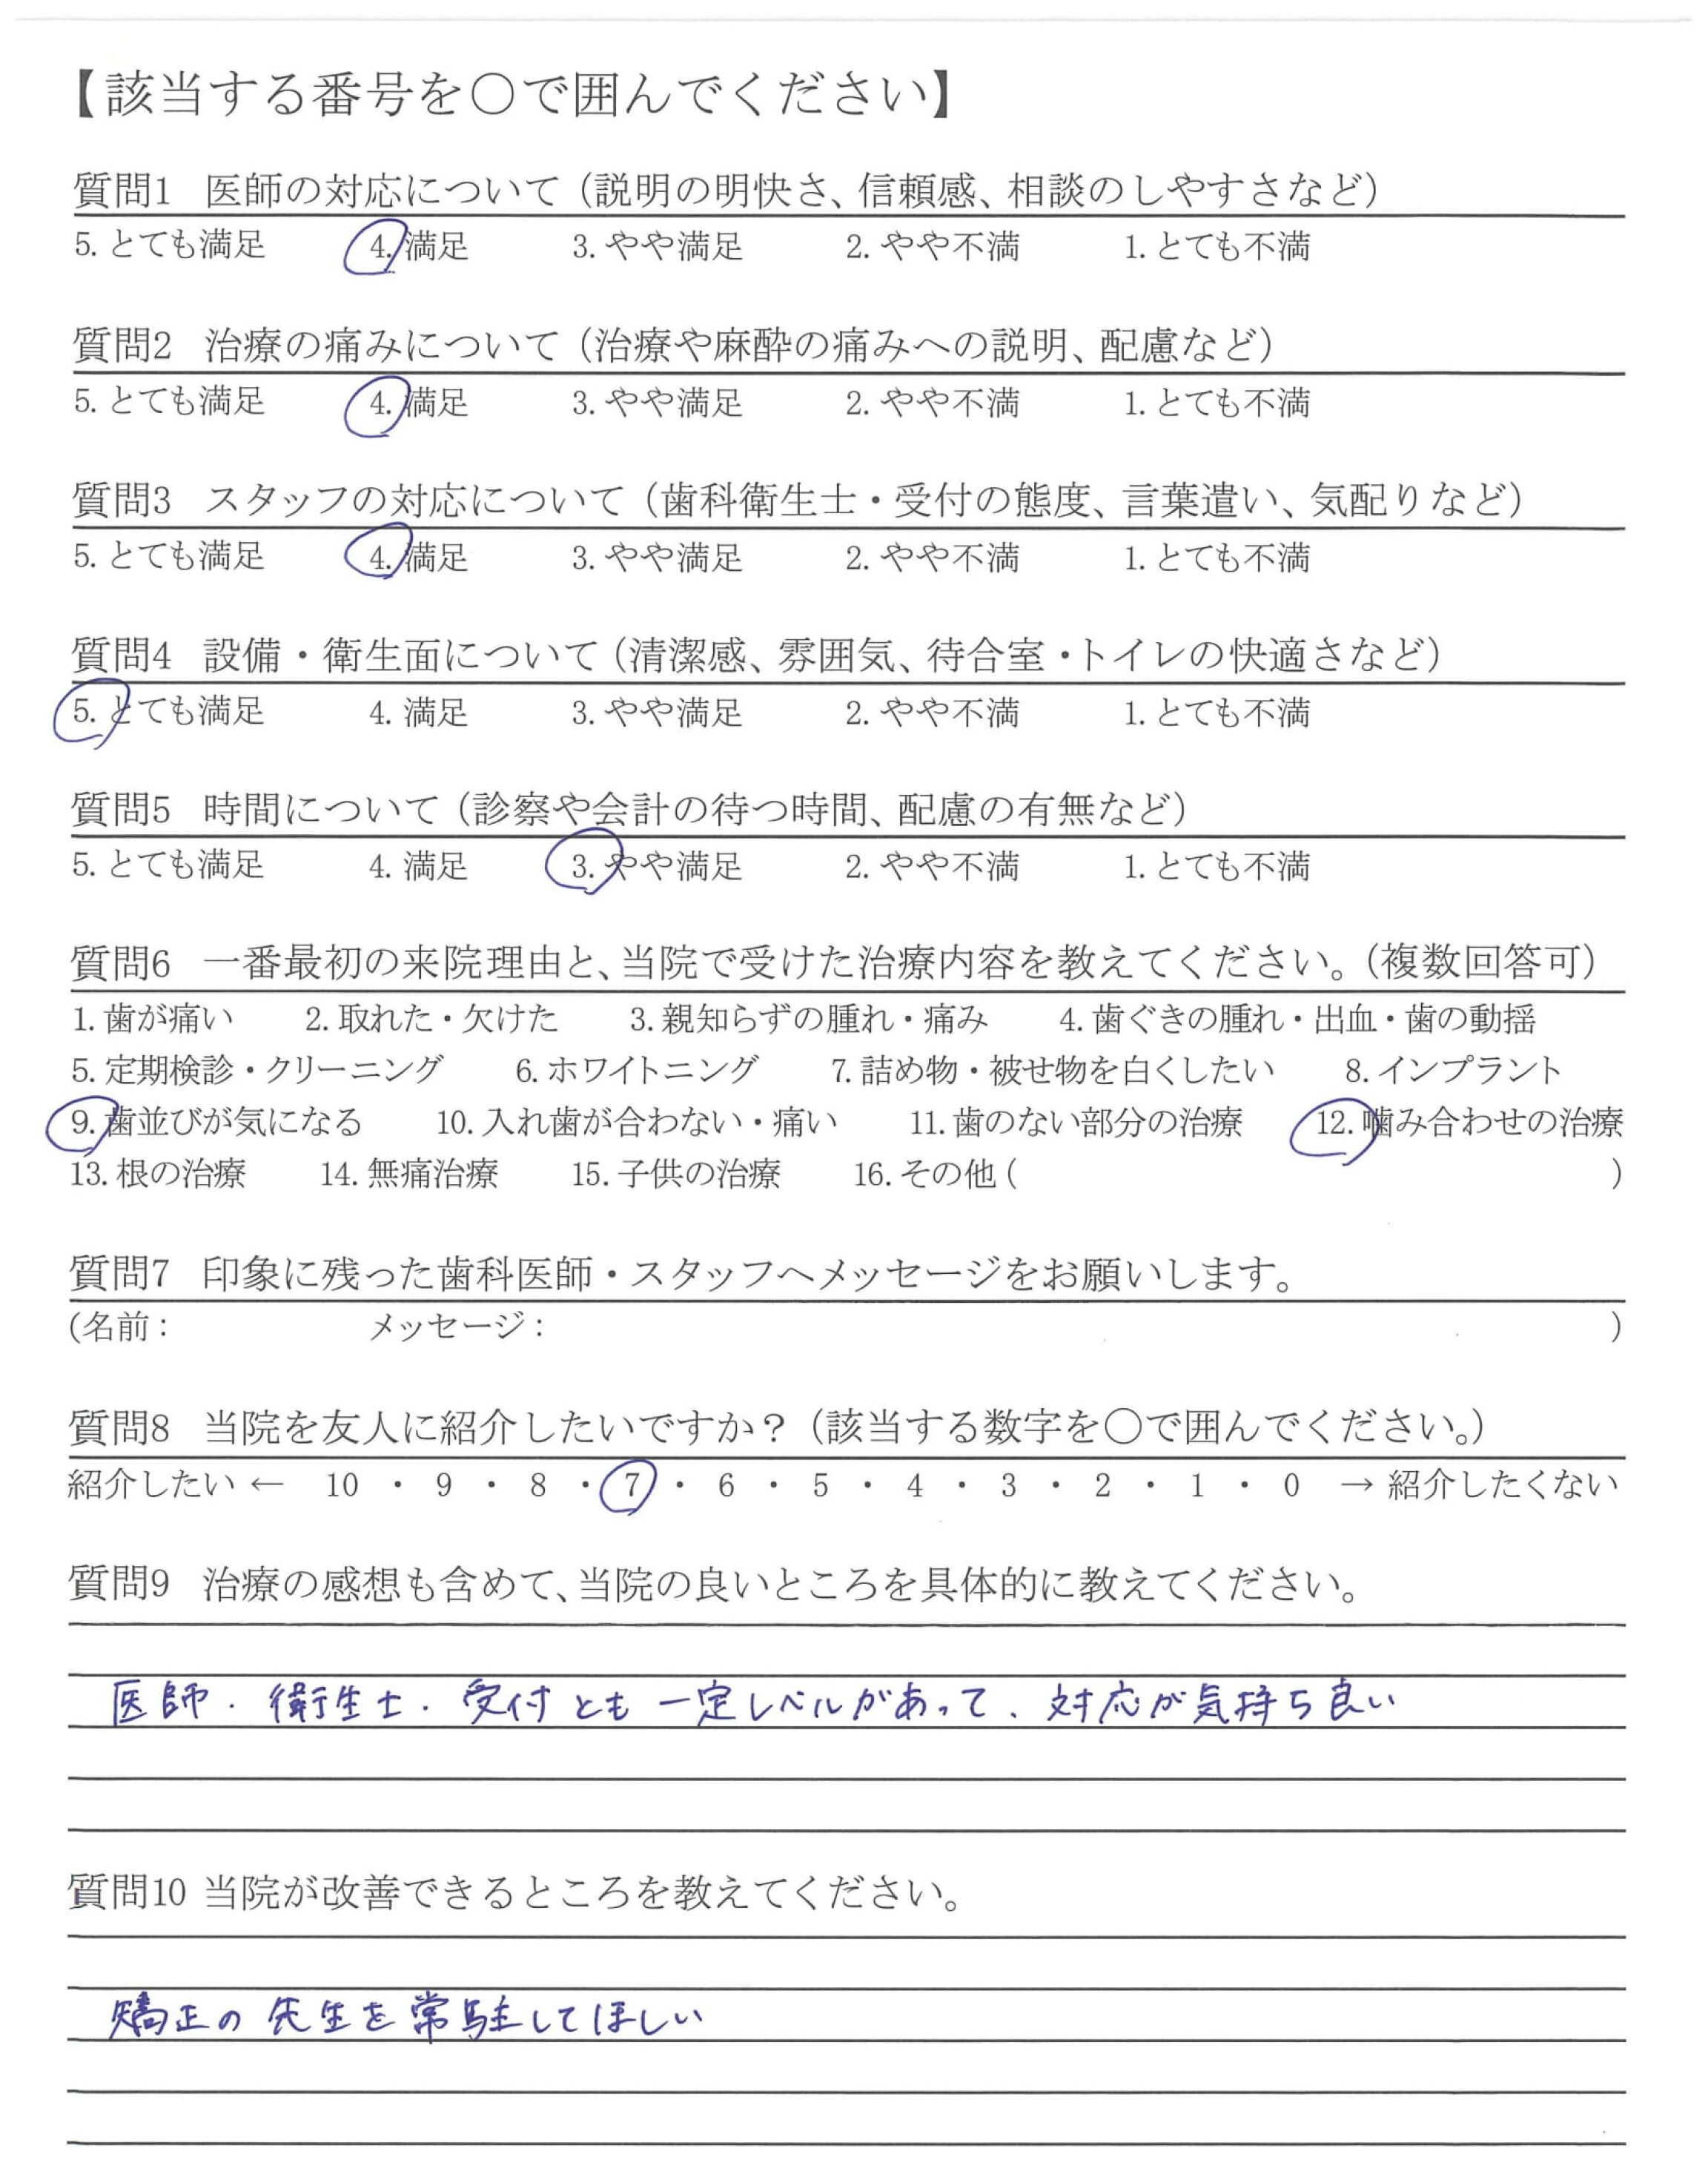 【該当する番号を○で囲んでください】
質問1 医師の対応について（説明の明快さ、信頼感、相談のしやすさなど）
5. とても満足 4. 満足 3. やや満足 2. やや不満 1. とても不満
質問2 治療の痛みについて（治療や麻酔の痛みへの説明、配慮など）
5. とても満足 4. 満足 3. やや満足 2. やや不満 1. とても不満
質問3 スタッフの対応について（歯科衛生士・受付の態度、言葉遣い、気配りなど）
5. とても満足 4. 満足 3. やや満足 2. やや不満 1. とても不満
質問4 設備・衛生面について（清潔感、雰囲気、待合室・トイレの快適さなど）
5. とても満足 4. 満足 3. やや満足 2. やや不満 1. とても不満
質問5 時間について（診察や会計の待つ時間、配慮の有無など）
5. とても満足 4. 満足 3. やや満足 2. やや不満 1. とても不満
質問6 一番最初の来院理由と、当院で受けた治療内容を教えてください。（複数回答可）
1. 歯が痛い 2. 取れた・欠けた 3. 親知らずの腫れ・痛み 4. 歯ぐきの腫れ・出血・歯の動揺
5. 定期検診・クリーニング 6. ホワイトニング 7. 詰め物・被せ物を白くしたい 8. インプラント
9. 歯並びが気になる 10. 入れ歯が合わない・痛い 11. 歯のない部分の治療 12. 噛み合わせの治療
13. 根の治療 14. 無痛治療 15. 子供の治療 16. その他 ( )
質問7 印象に残った歯科医師・スタッフへメッセージをお願いします。
(名前： メッセージ： )
質問8 当院を友人に紹介したいですか？（該当する数字を○で囲んでください。）
紹介したい ← 10 ・ 9 ・ 8 ・ 7 ・ 6 ・ 5 ・ 4 ・ 3 ・ 2 ・ 1 ・ 0 → 紹介したくない
質問9 治療の感想も含めて、当院の良いところを具体的に教えてください。
医師・衛生士・受付とも一定レベルがあって、対応が気持ち良い
質問10 当院が改善できるところを教えてください。
矯正の先生を常駐してほしい